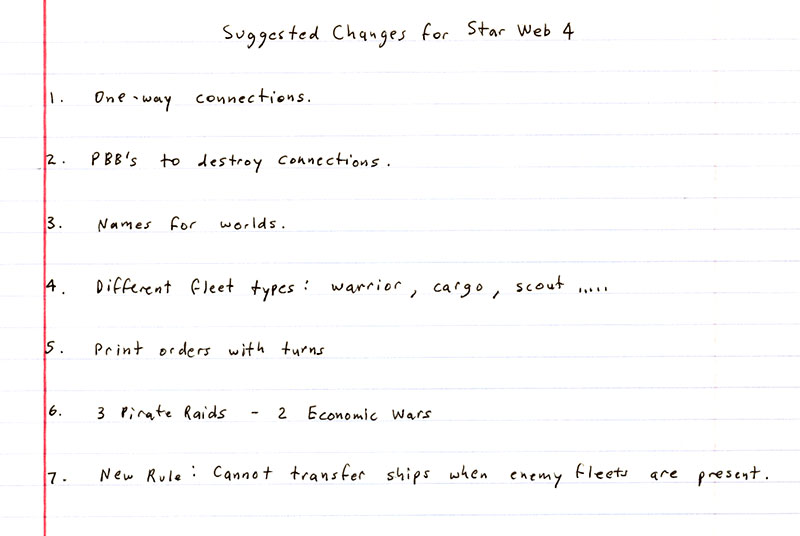 Suggested Changes for Star Web 4
1. One-way connections.
2. PBB's to destroy connections.
3. Names for worlds.
4. Different fleet types: warrior, cargo, scout .....
5. Print orders with turns
6. 3 Pirate Raids - 2 Economic Wars
7. New Rule: Cannot transfer ships when enemy fleets are present.